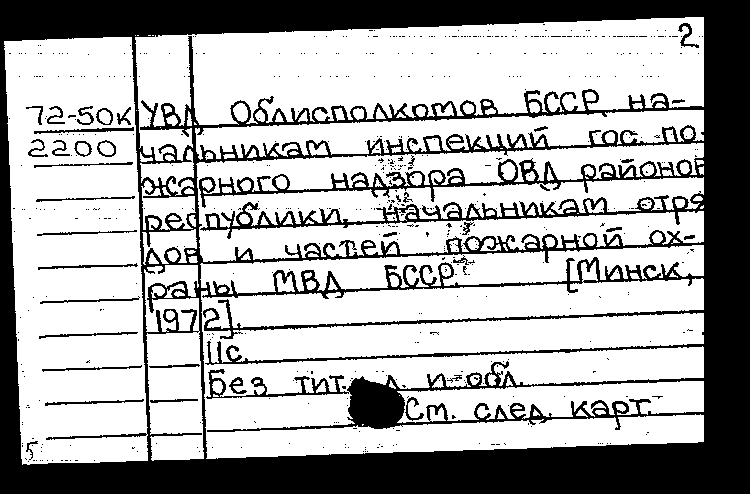 2
72-50К УВД Облисполкомов БССР, на-
2200 чальникам инспекций гос. по-
жарного надзора ОВД районов
республики, начальникам отря
дов и частей пожарной ох-
раны МВД БССР. [Минск,
1972].
11с.
Без тит. л. и обл.
См. след. карт.
5